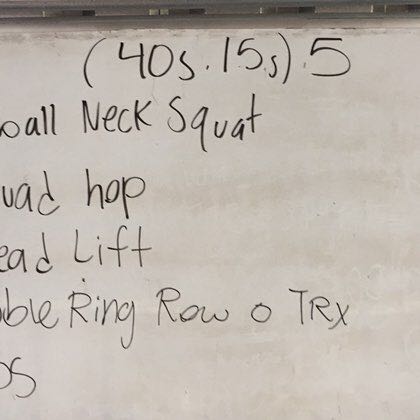 (40s.15s).5
oall Neck Squat
uad hop
ead Lift
ble Ring Row o TRx
os